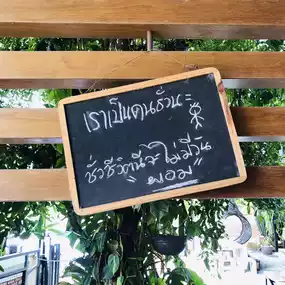 เราเป็นคนร่วน =
ชั่วชีวิตนี้จะไม่มีวัน
"ผอม"